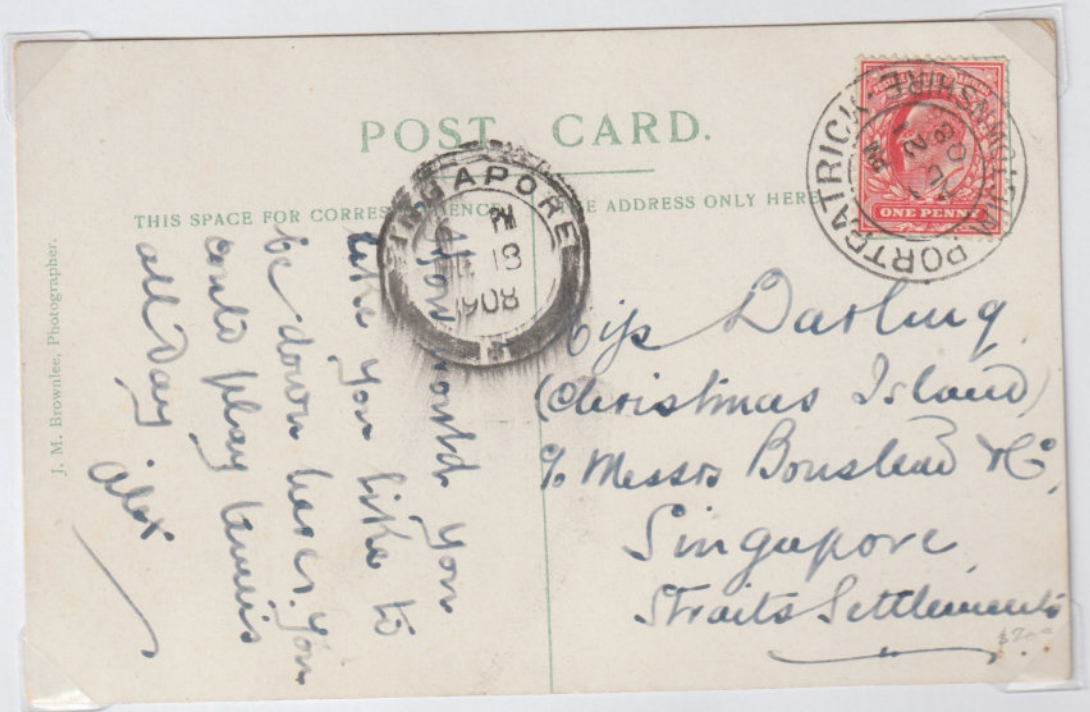 POST CARD.
THIS SPACE FOR CORRESPONDENCE ADDRESS ONLY HERE
J. M. Brownlee, Photographer.
SINGAPORE
PM
18
1908
PORTPATRICK · WIGTOWNSHIRE
PM
21
08
ONE PENNY
How would you
like you like to
be down here. You
could play tennis
all day
Alex
Darling
(Christmas Island)
c/o Messrs Boustead & Co
Singapore
Straits Settlements